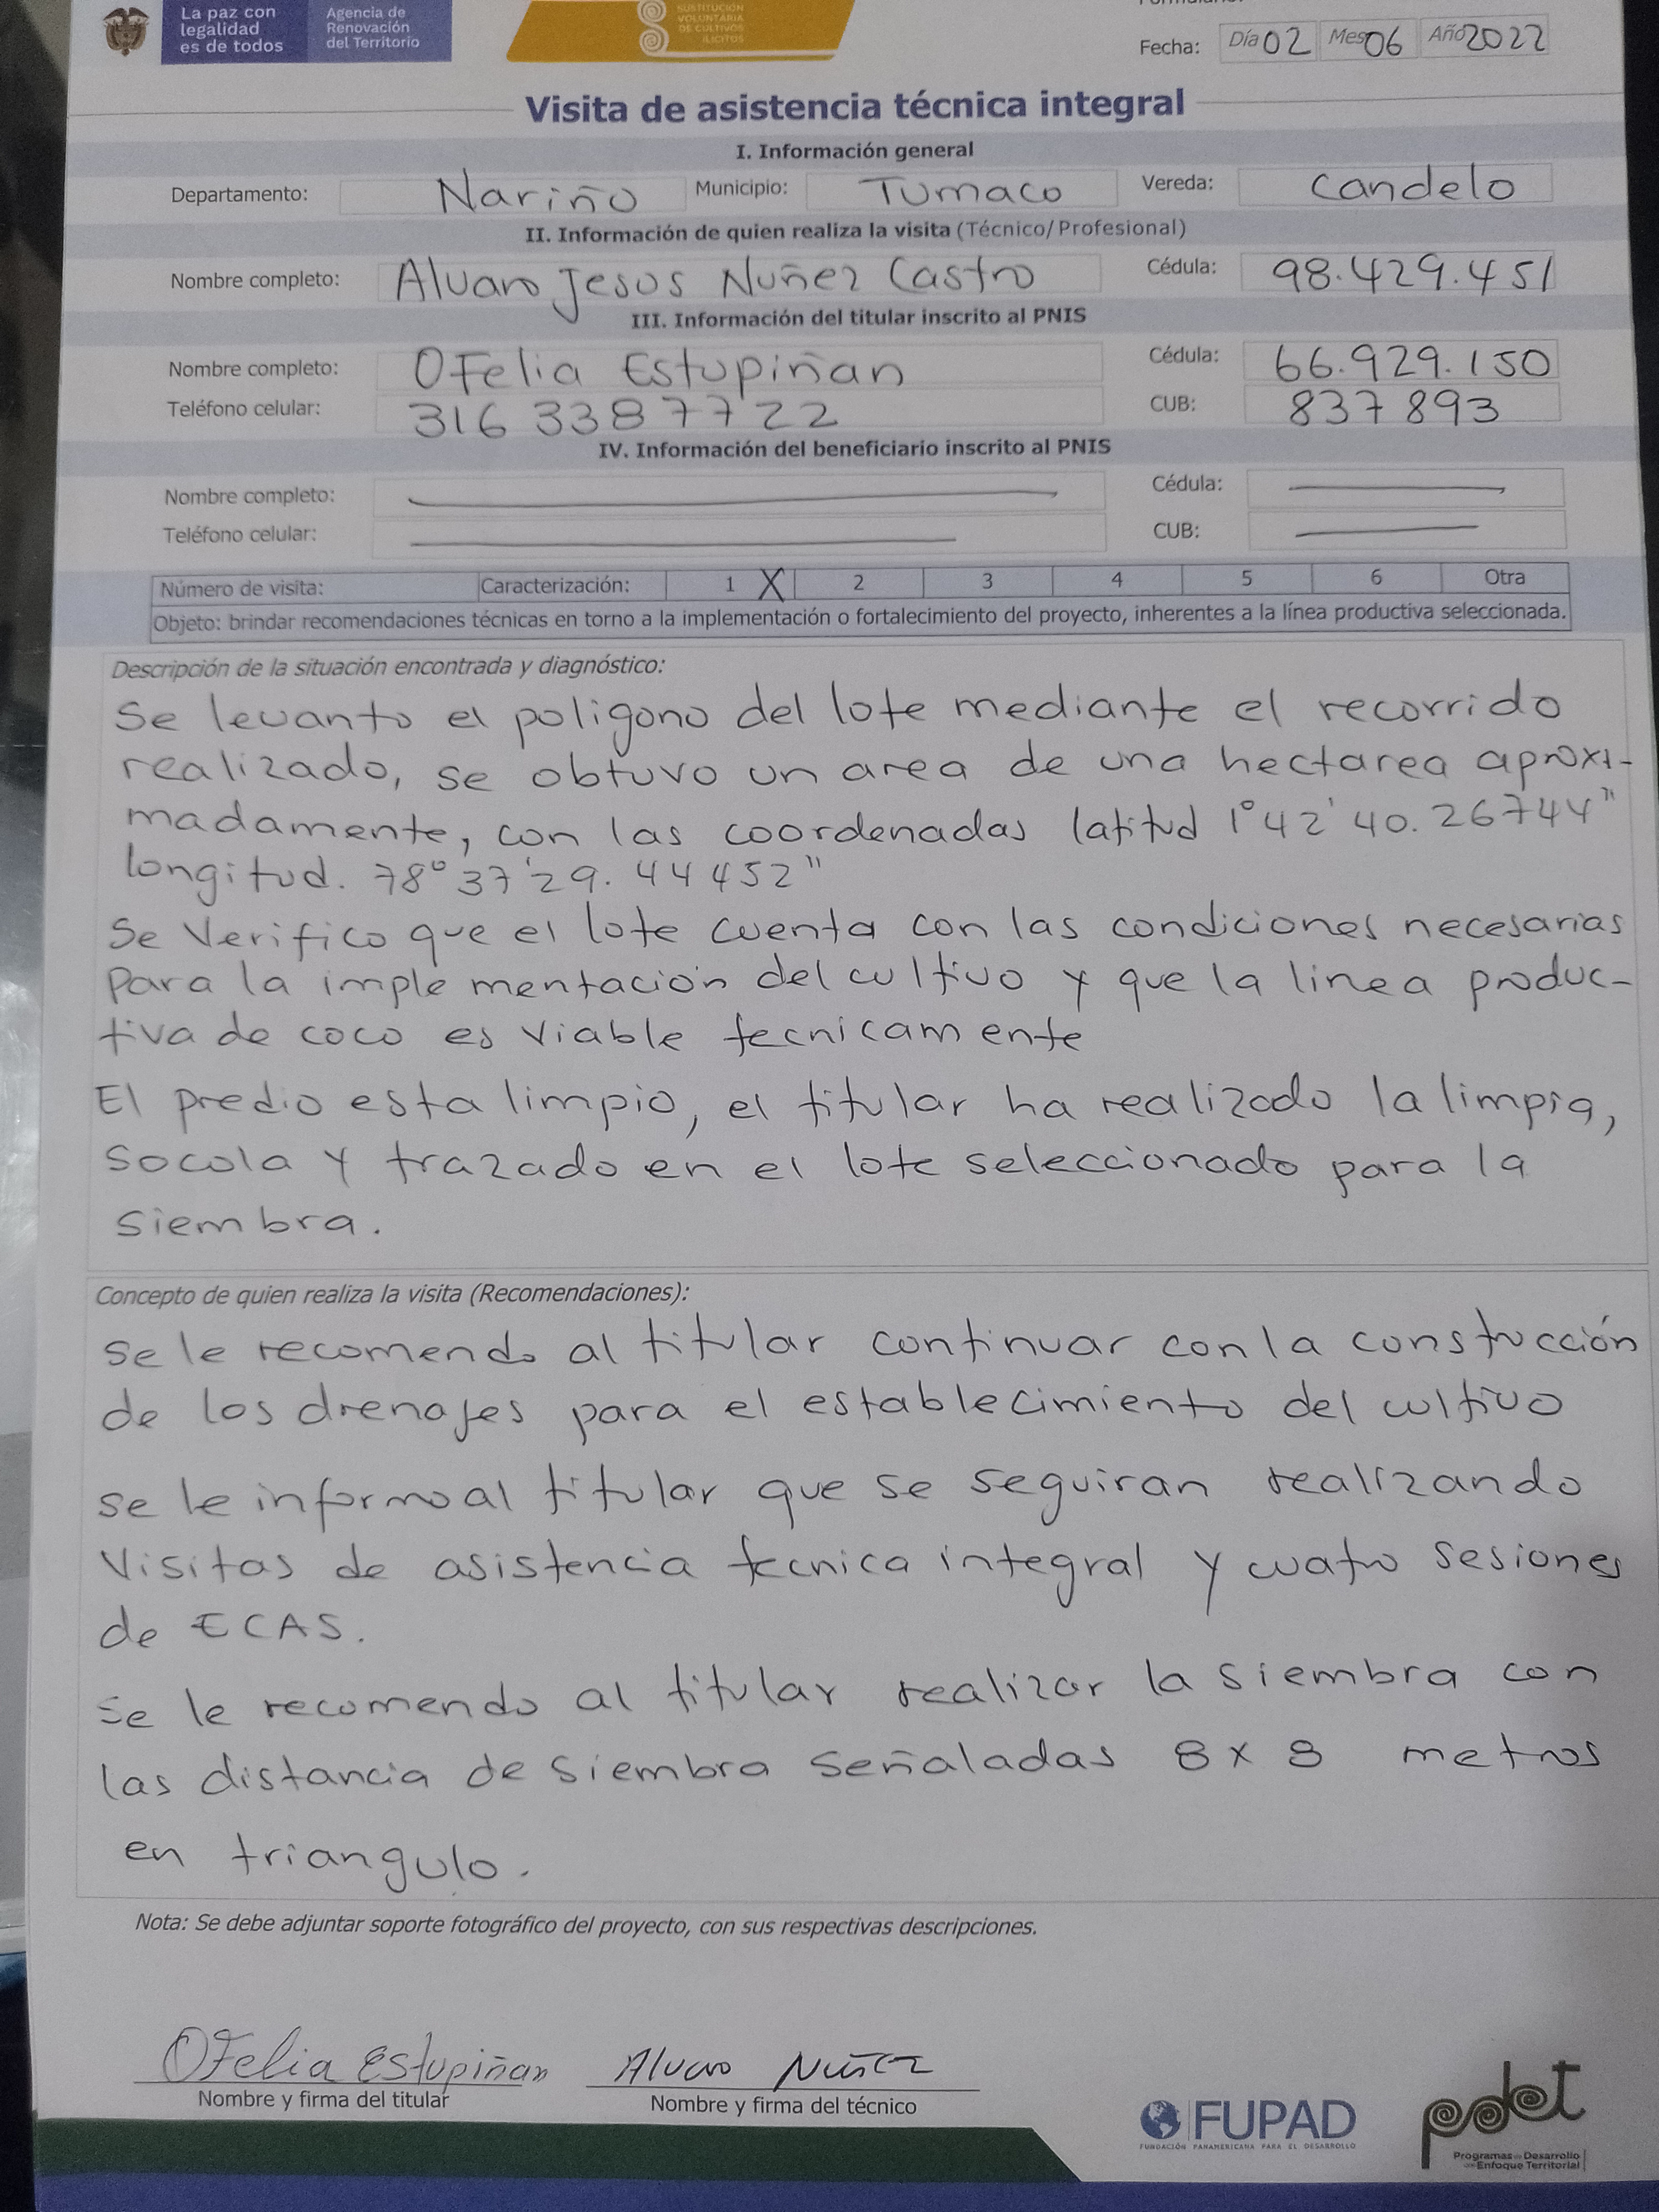 La paz con
legalidad
es de todos
Agencia de
Renovación
del Territorio
SUSTITUCIÓN
VOLUNTARIA
DE CULTIVOS
ILÍCITOS
Fecha: Día 02 Mes 06 Año 2022
Visita de asistencia técnica integral
I. Información general
Departamento: Nariño Municipio: Tumaco Vereda: Candelo
II. Información de quien realiza la visita (Técnico/ Profesional)
Nombre completo: Alvaro Jesus Nuñez Castro Cédula: 98.429.451
III. Información del titular inscrito al PNIS
Nombre completo: OFelia Estupiñan Cédula: 66.929.150
Teléfono celular: 316 3387722 CUB: 837893
IV. Información del beneficiario inscrito al PNIS
Nombre completo: Cédula:
Teléfono celular: CUB:
Número de visita: Caracterización: 1 X 2 3 4 5 6 Otra
Objeto: brindar recomendaciones técnicas en torno a la implementación o fortalecimiento del proyecto, inherentes a la línea productiva seleccionada.
Descripción de la situación encontrada y diagnóstico:
Se levanto el poligono del lote mediante el recorrido
realizado, se obtuvo un area de una hectarea aproxi-
madamente, con las coordenadas latitud 1°42'40.26744"
longitud. 78°37'29.44452"
Se Verifico que el lote cuenta con las condiciones necesarias
Para la implementación del cultivo y que la linea produc-
tiva de coco es viable tecnicamente
El predio esta limpio, el titular ha realizado la limpia,
socola y trazado en el lote seleccionado para la
siembra.
Concepto de quien realiza la visita (Recomendaciones):
se le recomendo al titular continuar con la construcción
de los drenajes para el establecimiento del cultivo
se le informo al titular que se seguiran realizando
Visitas de asistencia tecnica integral y cuatro sesiones
de ECAS.
se le recomendo al titular realizar la siembra con
las distancia de siembra señaladas 8 x 8 metros
en triangulo.
Nota: Se debe adjuntar soporte fotográfico del proyecto, con sus respectivas descripciones.
OFelia Estupiñan Alvaro Nuñez
Nombre y firma del titular Nombre y firma del técnico
FUPAD
FUNDACIÓN PANAMERICANA PARA EL DESARROLLO
pdet
Programas de Desarrollo
con Enfoque Territorial